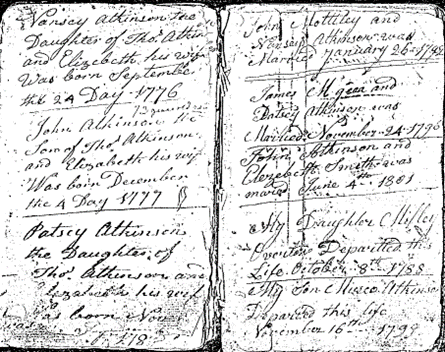 Nansey Atkinson the
Daughter of Thos Atkin
and Elizebeth his wife
Was born Septembe
the 24 Day 1776
John Atkinson the
Son of Thos Atkinson
and Elizabeth his wif
Was born December
the 4 Day 1779
Patsey Atkinson
the Daughter of
Thos Atkinson and
Elizabeth his wif
as born Nov
John Mottley and
Nansey Atkinson was
Married January 26 1792
James and
Patsey Atkinson was
Married November 24 1798
John Atkinson and
Elizebeth Smith was
married June 4th 1801
My Daughter
Overton Departed this
Life October 8th 1788
My Son Atkinso
Departed this life
November 16th 1799